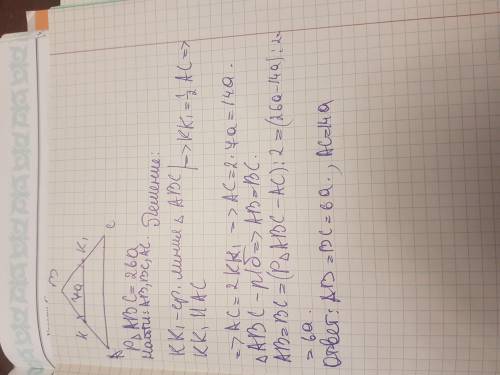 B
K 7a K₁
A C
P△ABC=26a
Найти: AB, BC, AC. Решение:
KK₁-ср. линия △ABC | => KK₁=½AC=>
KK₁ || AC
=> AC=2KK₁ => AC=2·7a=14a.
△ABC-р/б=> AB=BC.
AB=BC=(P△ABC-AC):2=(26a-14a):2=
=6a.
Ответ: AB=BC=6a., AC=14a